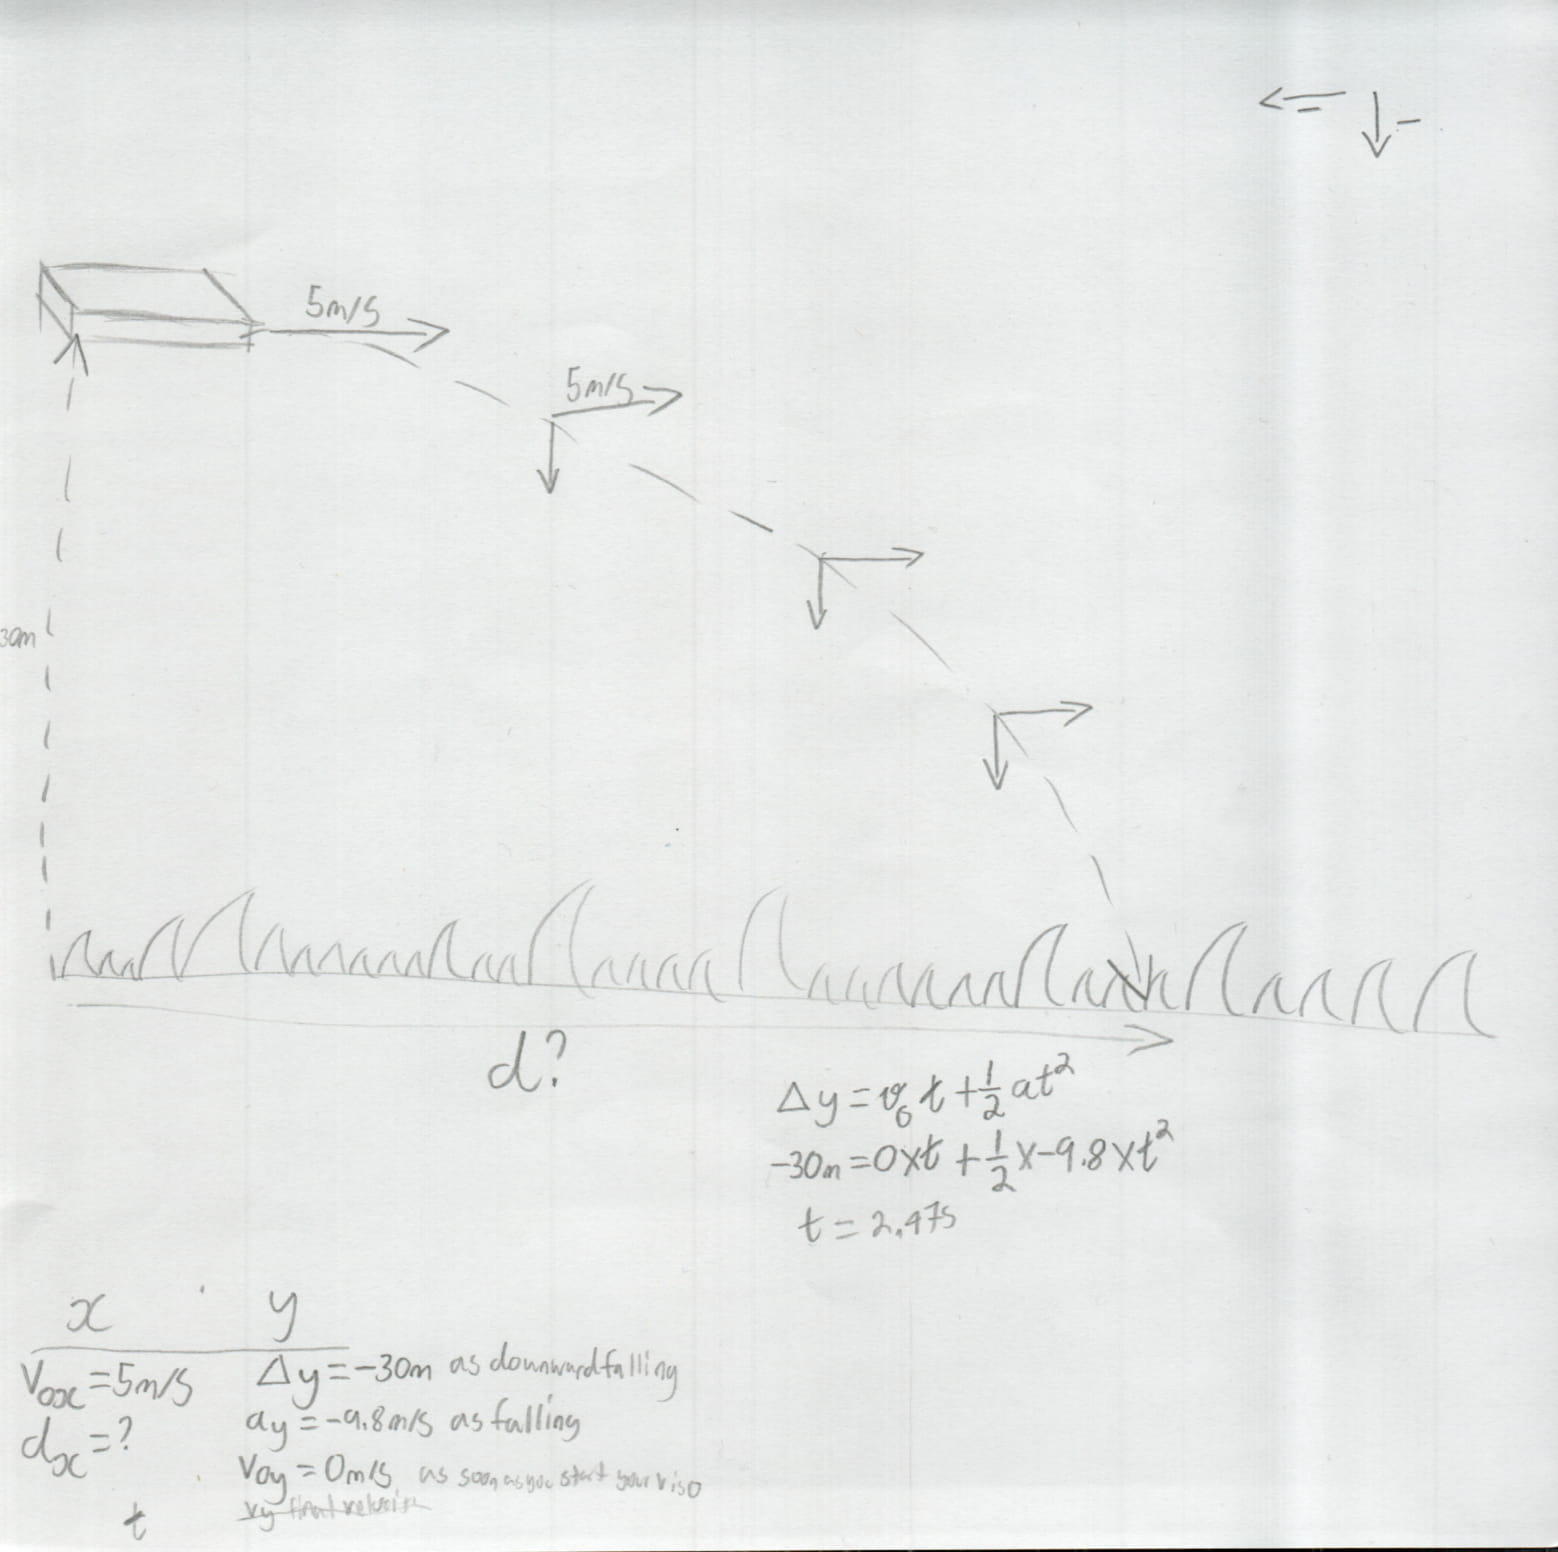 5m/s
5m/s
30m
d?
Δy = v₀ t + 1/2 at²
-30m = 0xt + 1/2 x-9.8xt²
t = 2.47s
x y
V₀ₓ = 5m/s Δy = -30m as downward falling
dₓ = ? ay = -9.8m/s as falling
V₀y = 0m/s as soon as you start your v is 0
vy final
t